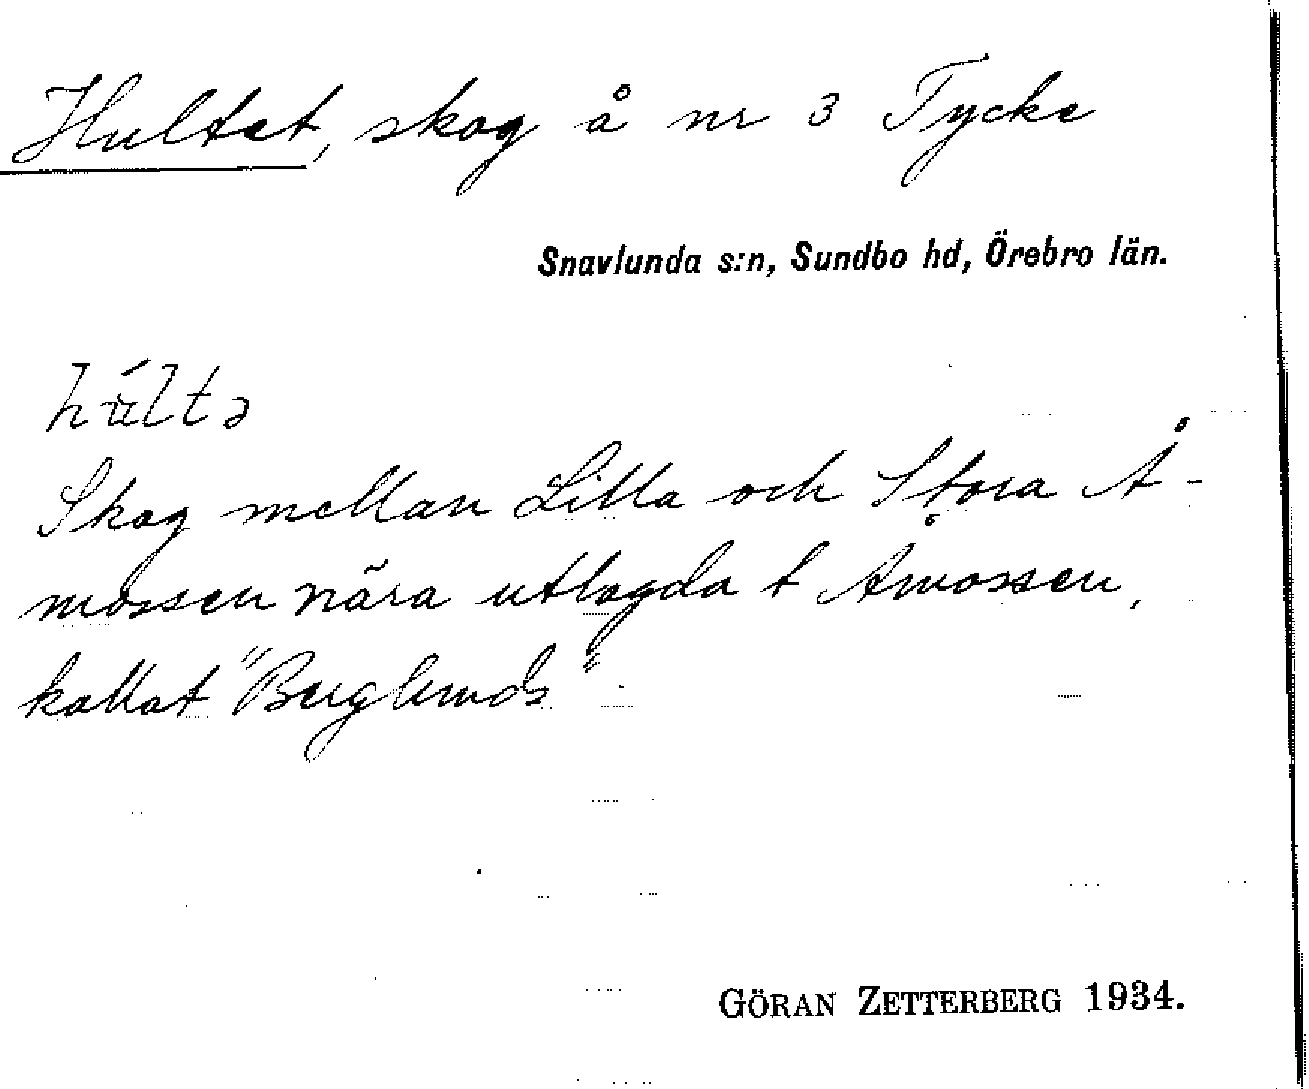 Hultet, skog å nr 3 Tycke
Snavlunda s:n, Sundbo hd, Örebro län.
húltə
Skog mellan Lilla och Stora Å-
mossen nära utlagda t Åmossen,
kallat "Berglunds".
GÖRAN ZETTERBERG 1934.